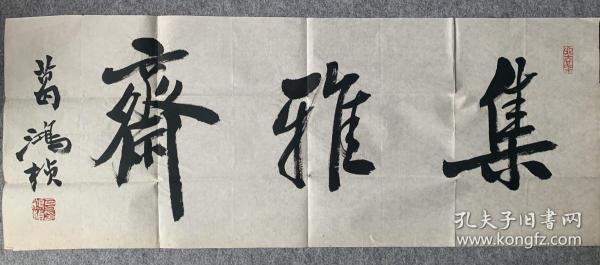 集雅齋
葛鴻楨
孔夫子旧书网
www.kongfz.com